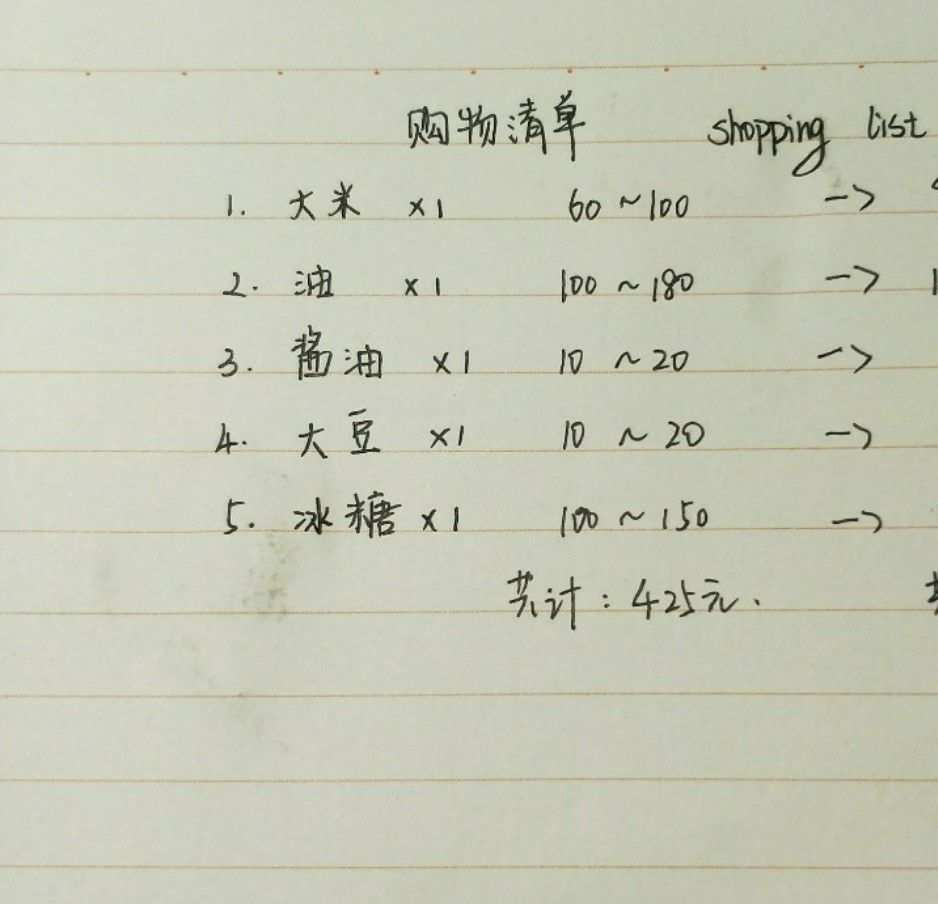 购物清单 shopping list
1. 大米 ×1 60~100 ->
2. 油 ×1 100~180 -> 1
3. 酱油 ×1 10~20 ->
4. 大豆 ×1 10~20 ->
5. 冰糖 ×1 100~150 ->
共计：425元.